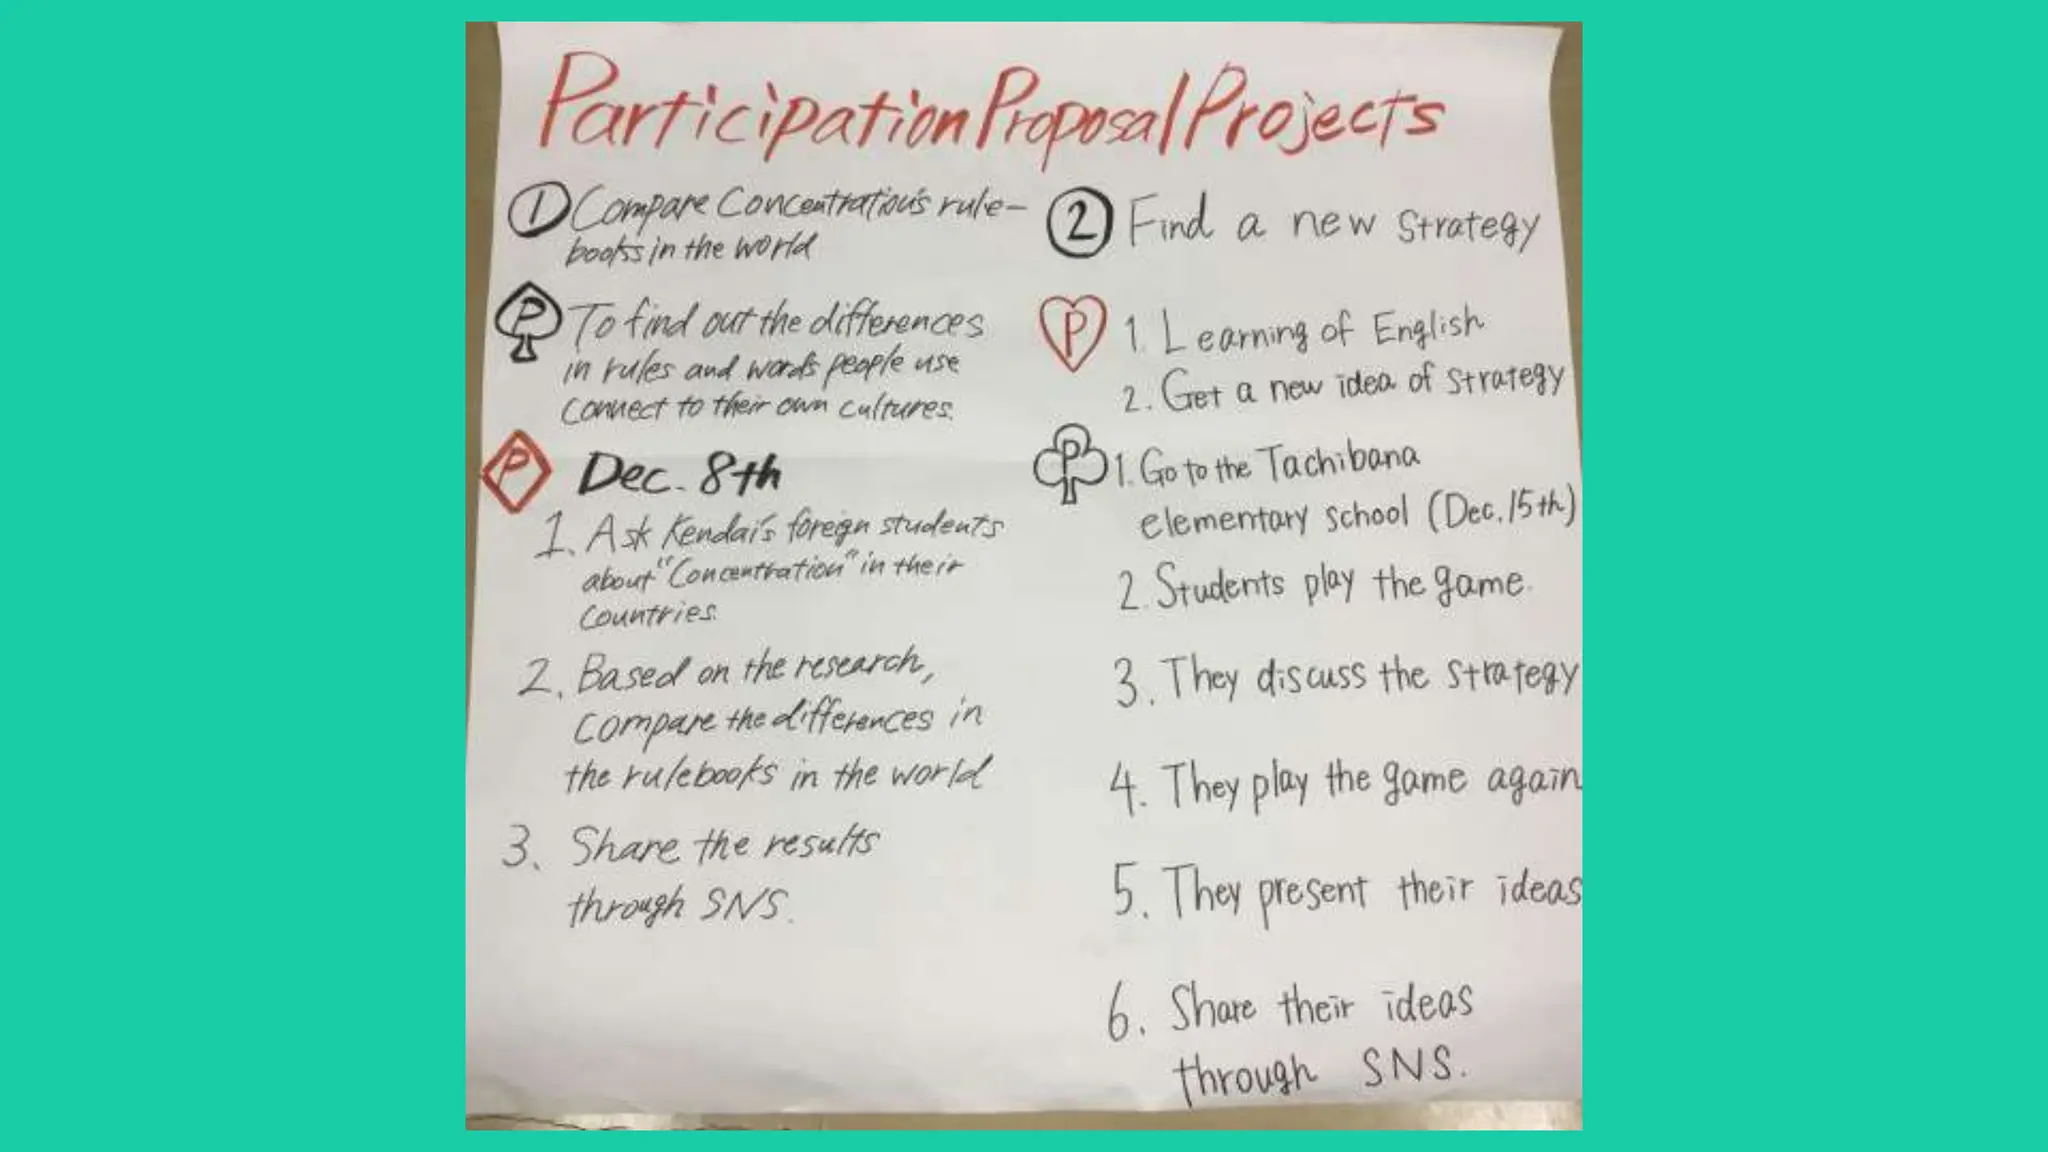 Participation Proposal Projects
① Compare Concentration's rule-
books in the world
P To find out the differences
in rules and words people use
connect to their own cultures.
P Dec. 8th
1. Ask Kendai's foreign students
about "Concentration" in their
countries.
2. Based on the research,
compare the differences in
the rulebooks in the world
3. Share the results
through SNS.
② Find a new strategy
P 1. Learning of English
2. Get a new idea of strategy
P 1. Go to the Tachibana
elementary school (Dec. 15th)
2. Students play the game.
3. They discuss the strategy
4. They play the game again
5. They present their ideas
6. Share their ideas
through SNS.